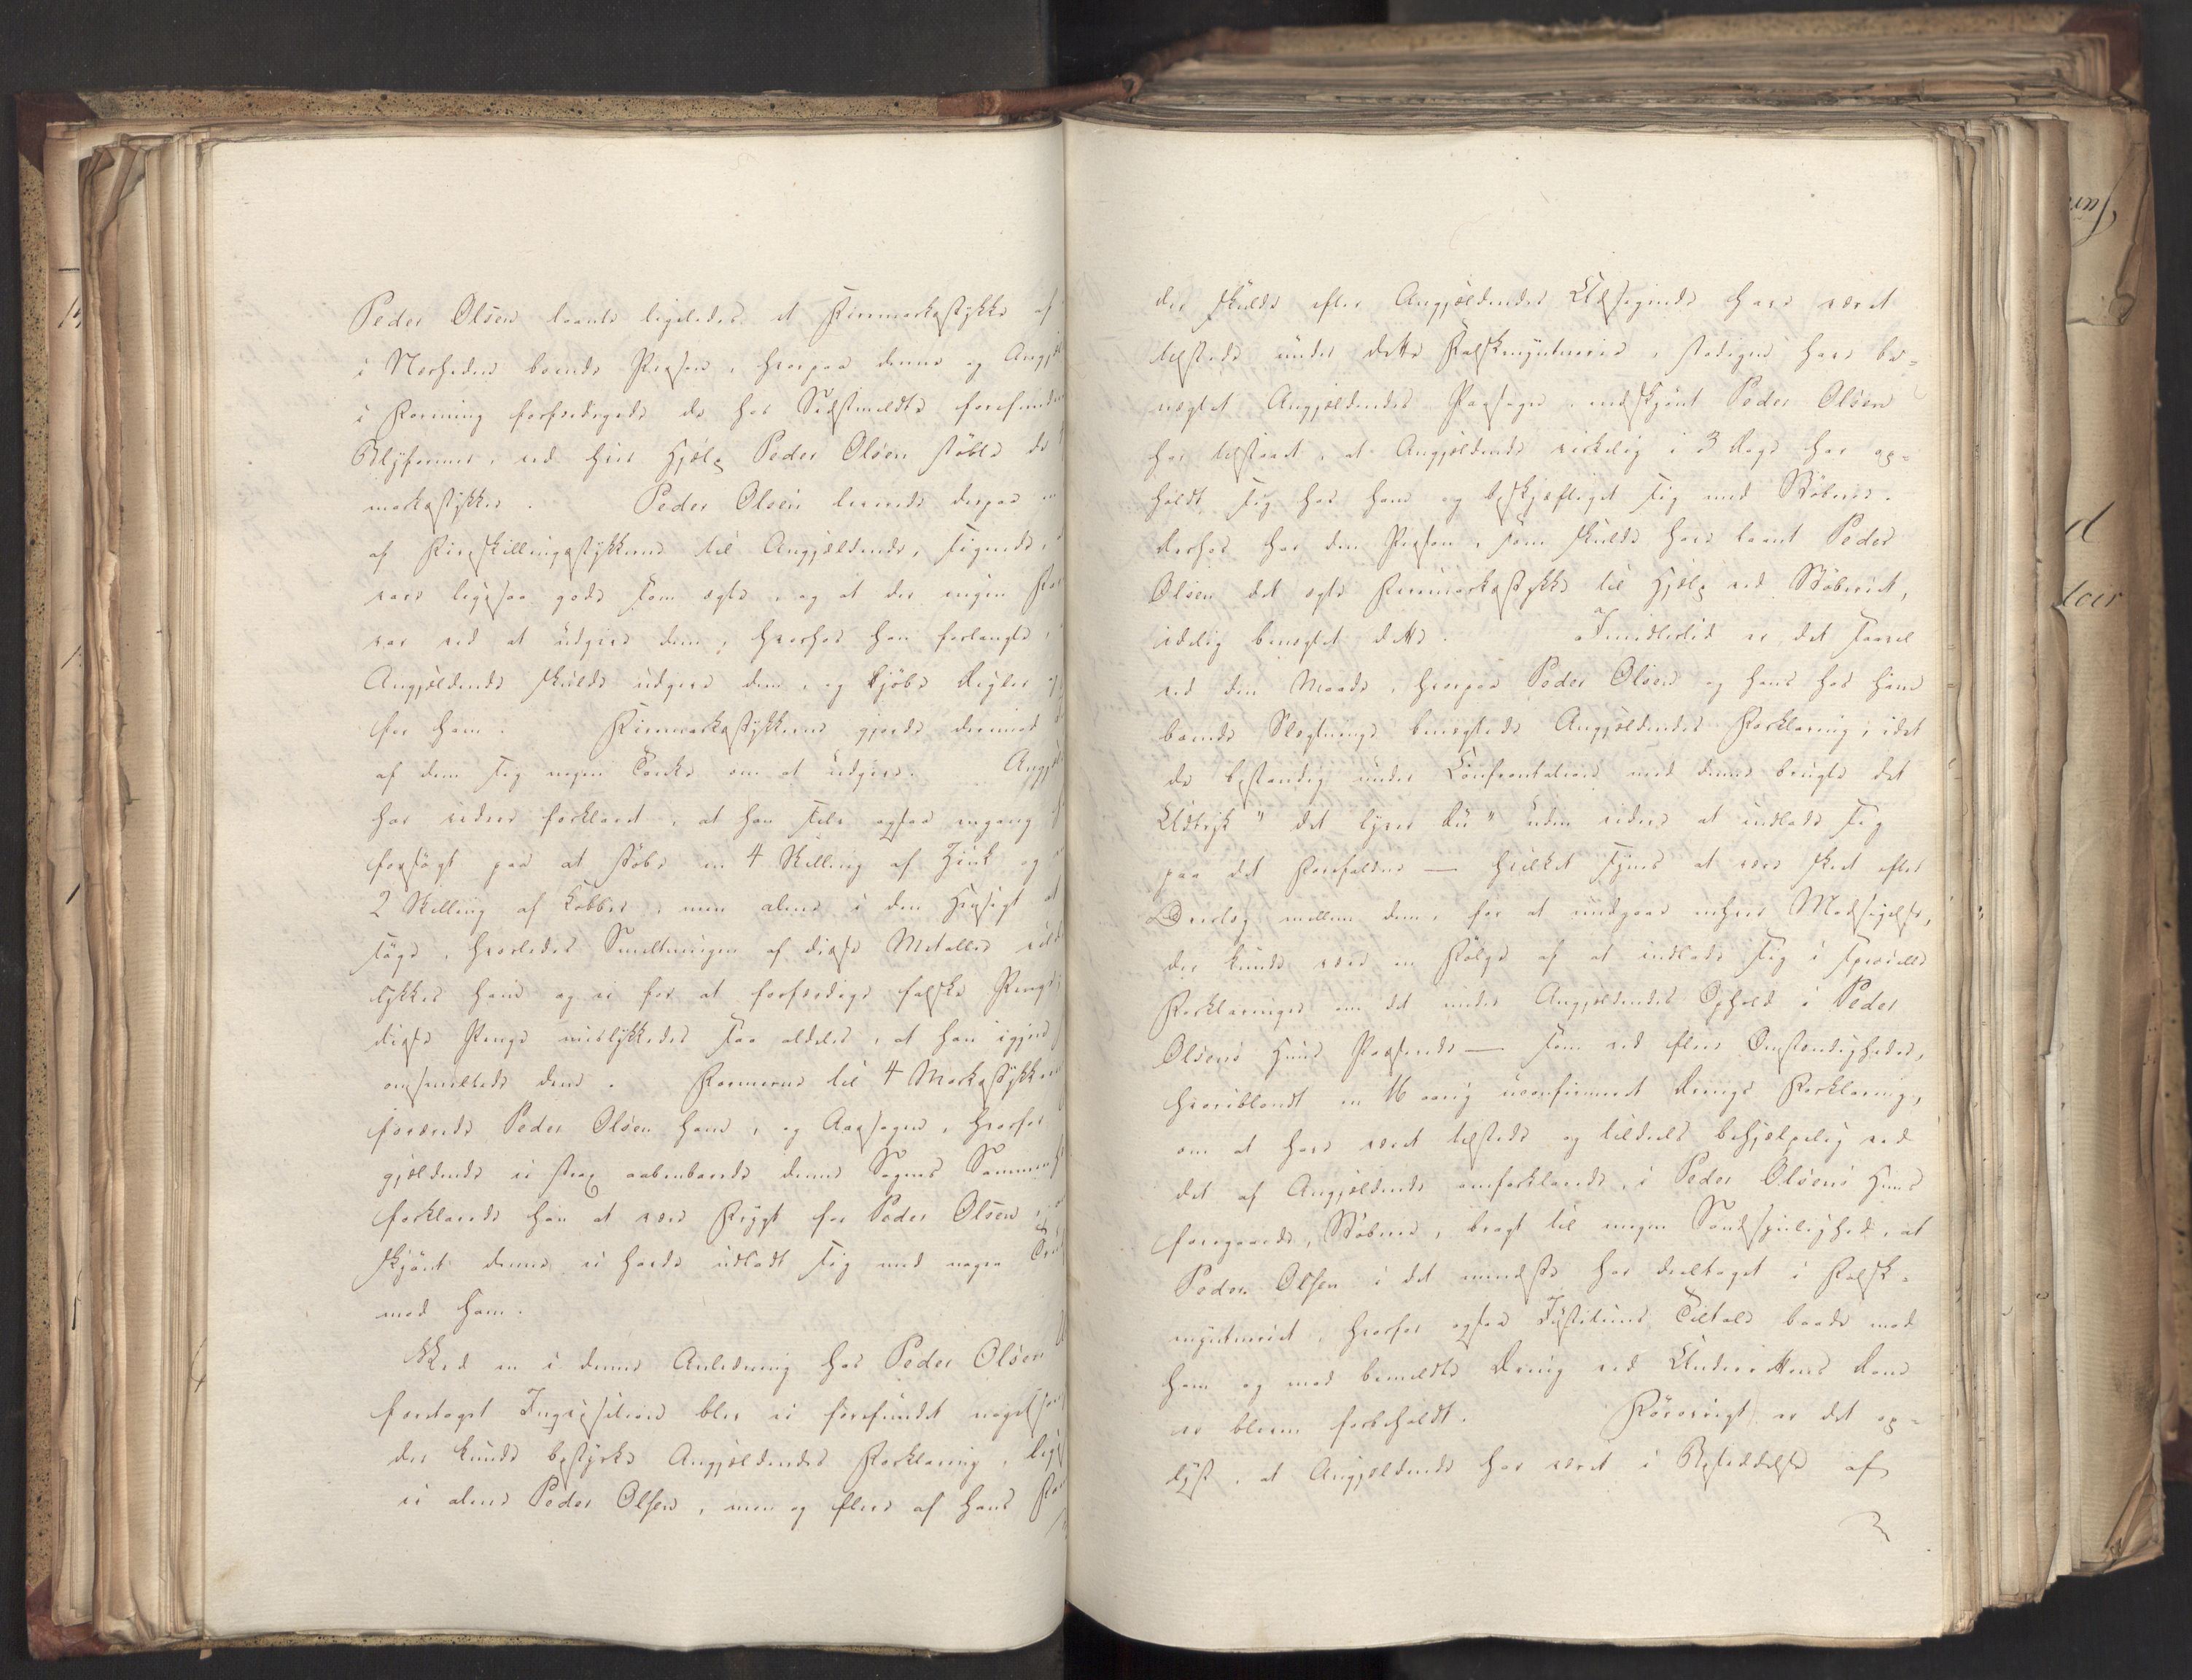 Peder Olsen laante ligeledes et Firemarkstykke af
i Nærheden boende Person, hvorpaa denne og Angjæl
i Forening forfærdigede de hos Sidstmeldte forefundne
Blyformer, ved hvis Hjelp Peder Olsen støbte de
markstykker. Peder Olsen leverede derpaa
af Fireskillingstykkerne til Angjældende, sigende,
vare ligesaa gode som ægte, og at der ingen Fare
var ved at udgive dem, hvorhos han forlangte,
Angjældende skulde udgive dem, og kjøbe Digler
for ham. Firemarkstykkerne gjorde derimod
af dem sig nogen Tanke om at udgive. Angjæl
har videre forklaret, at han selv ogsaa engang
forsøgt paa at støbe en 4 Skilling af Zink og
2 Skilling af Kobber, men alene i den Hensigt at
søge, hvorledes Smeltningen af disse Metaller vilde
lykkes ham og ei for at forfærdige falske Penge;
disse Penge mislykkedes saa aldeles, at han igjen
omsmeltede dem. Formerne til 4 Markstykkerne
forærede Peder Olsen ham, og Aarsagen, hvorfor
gjældende ei strax aabenbarede denne Sagens Sammenh
forklarede han at være Frygt for Peder Olsen,
skjønt denne ei havde udladt sig med nogen Trud
mod ham.
Ved en i denne Anledning hos Peder Olsen
foretaget Inqvisition blev ei forefundet noget som
der kunde bestyrke Angjældendes Forklaring, lige
ei alene Peder Olsen, men og flere af hans
der skulde efter Angjældendes Udsigende have været
tilstede under dette Falskmynterie, stedigen have be-
nægtet Angjældendes Paasagn, endskjønt Peder Olsen
har tilstaaet, at Angjældende virkelig i 3 Dage har op-
holdt sig hos ham og beskjæftiget sig med Støberie.
Derhos har den Person, som skulde have laant Peder
Olsen det ægte Firemarkstykke til Hjelp ved Støberiet,
idelig benægtet dette. Imidlertid er det saavel
ved den Maade, hvorpaa Peder Olsen og hans hos ham
boende Slægtninge benægtede Angjældendes Forklaring, idet
de bestandig under Confrontation med denne brugte det
Udtryk "det lyver Du" uden videre at indlade sig
paa det Forefaldne — hvilket synes at være skeet efter
Overlæg mellem dem, for at undgaae enhver Modsigelse,
der kunde være en Følge af at indlade sig i specielle
Forklaringer om det under Angjældendes Ophold i Peder
Olsens Huus Passerede — som ved flere Omstændigheder,
hvoriblandt en 16 aarig uconfirmeret Drengs Forklaring,
om at have været tilstede og tildeels behjælpelig ved
det af Angjældende omforklarede, i Peder Olsens Huus
foregaaede, Støberie, bragt til megen Sandsynlighed, at
Peder Olsen i det mindste har deeltaget i Falsk-
mynteriet, hvorfor ogsaa Justitiens Tiltale baade mod
ham og mod bemeldte Dreng ved Underrettens Dom
er bleven forbeholdt. Forøvrigt er det op-
lyst, at Angjældende har været i Besiddelse af